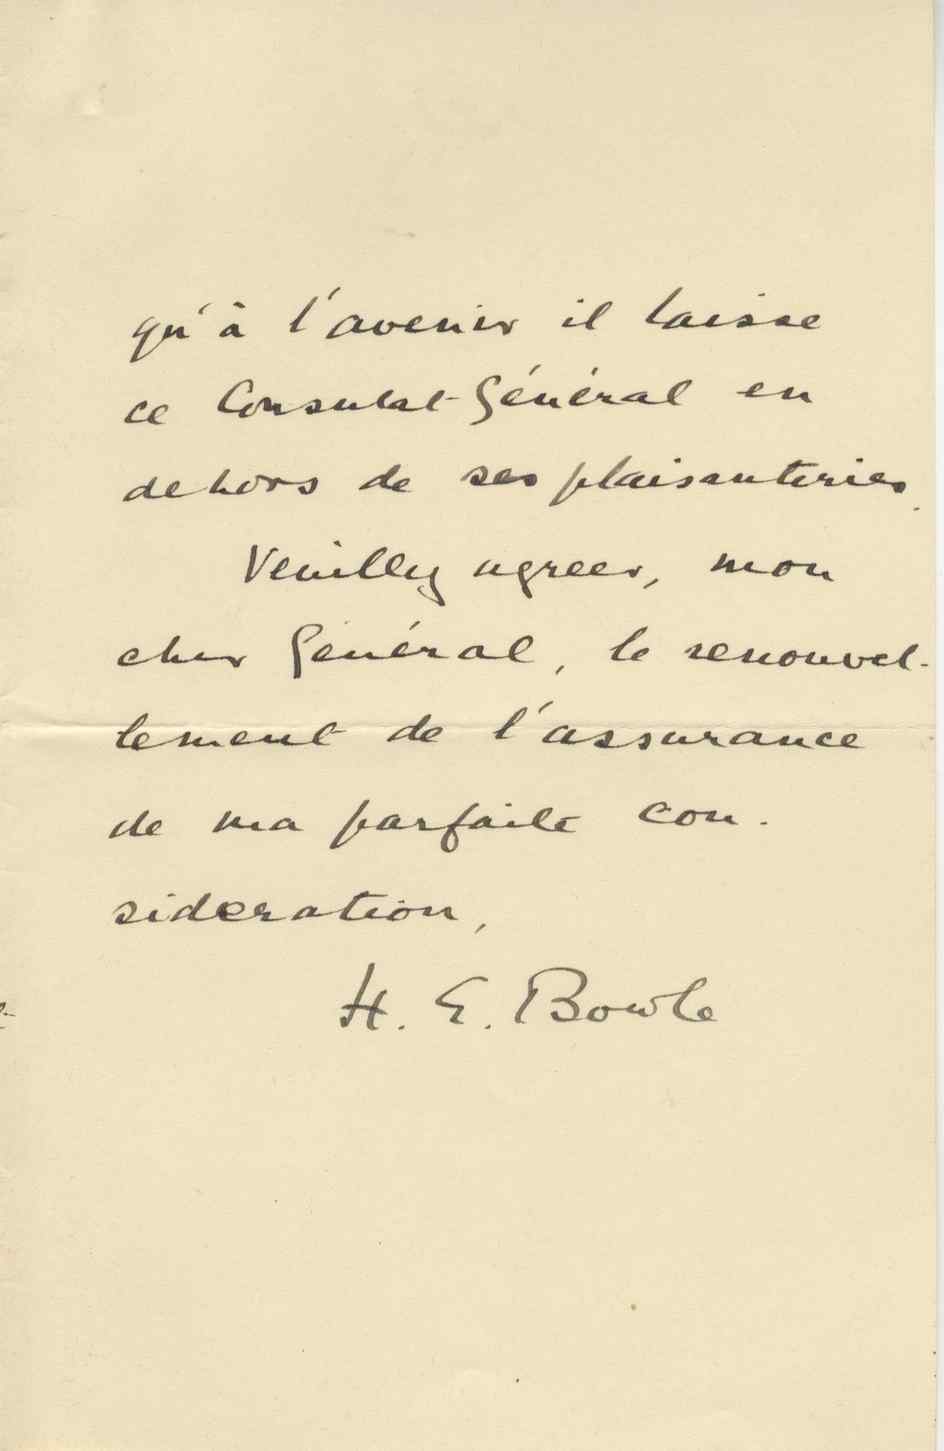 qu'à l'avenir il laisse
ce Consulat-Général en
dehors de ses plaisanteries.
Veuillez agreer, mon
cher Général, le renouvel-
lement de l'assurance
de ma parfaite con-
sideration,
H. E. Bowle